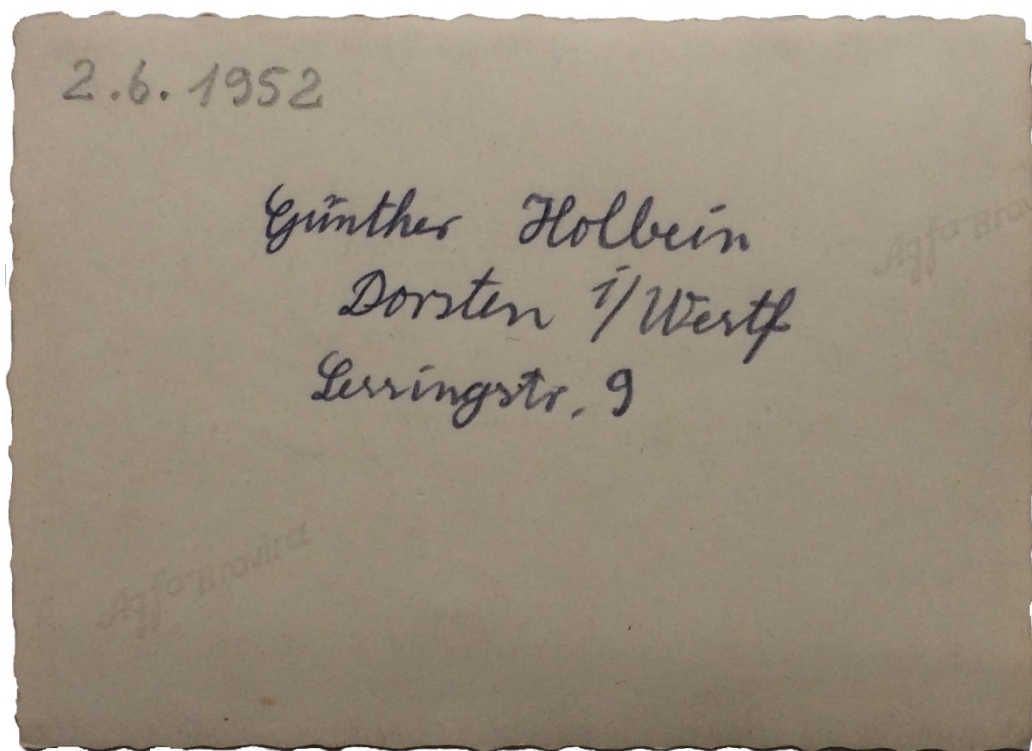 2.6.1952
Günther Holbein
Dorsten i/Westf
Lessingstr. 9
Agfa-Bro
Agfa-Brovira